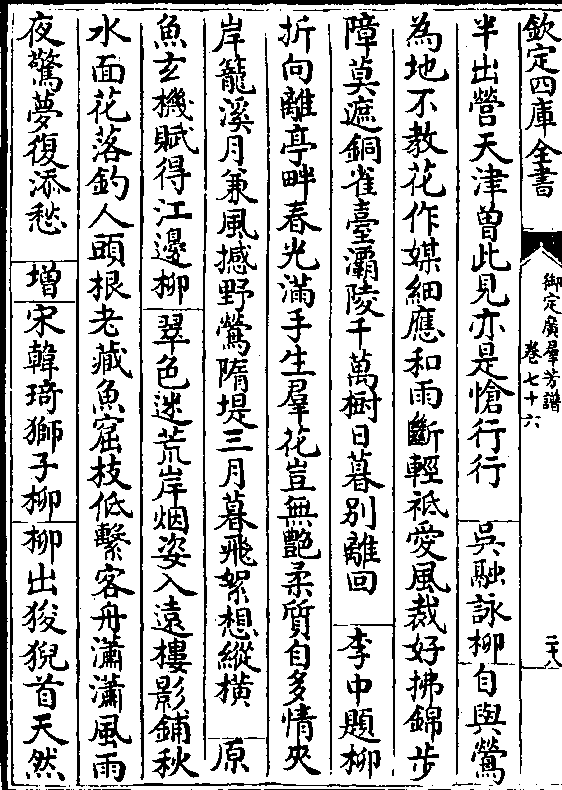 欽定四庫全書
御定廣羣芳譜
卷七十六
二十八
半出營天津曽此見亦是愴行行 吳融詠柳 自與鶯
為地不教花作媒細應和雨斷輕袛愛風裁好拂錦步
障莫遮銅雀臺灞陵千萬樹日暮别離回 李中題柳
折向離亭畔春光滿手生羣花豈無艶柔質自多情夾
岸籠溪月兼風撼野鶯隋堤三月暮飛絮想縱横 原
魚玄機賦得江邊柳 翠色迷荒岸烟姿入遠樓影鋪秋
水面花落釣人頭根老藏魚窟枝低繫客舟瀟瀟風雨
夜驚夢復添愁 増宋韓琦獅子柳 柳出狻猊首天然